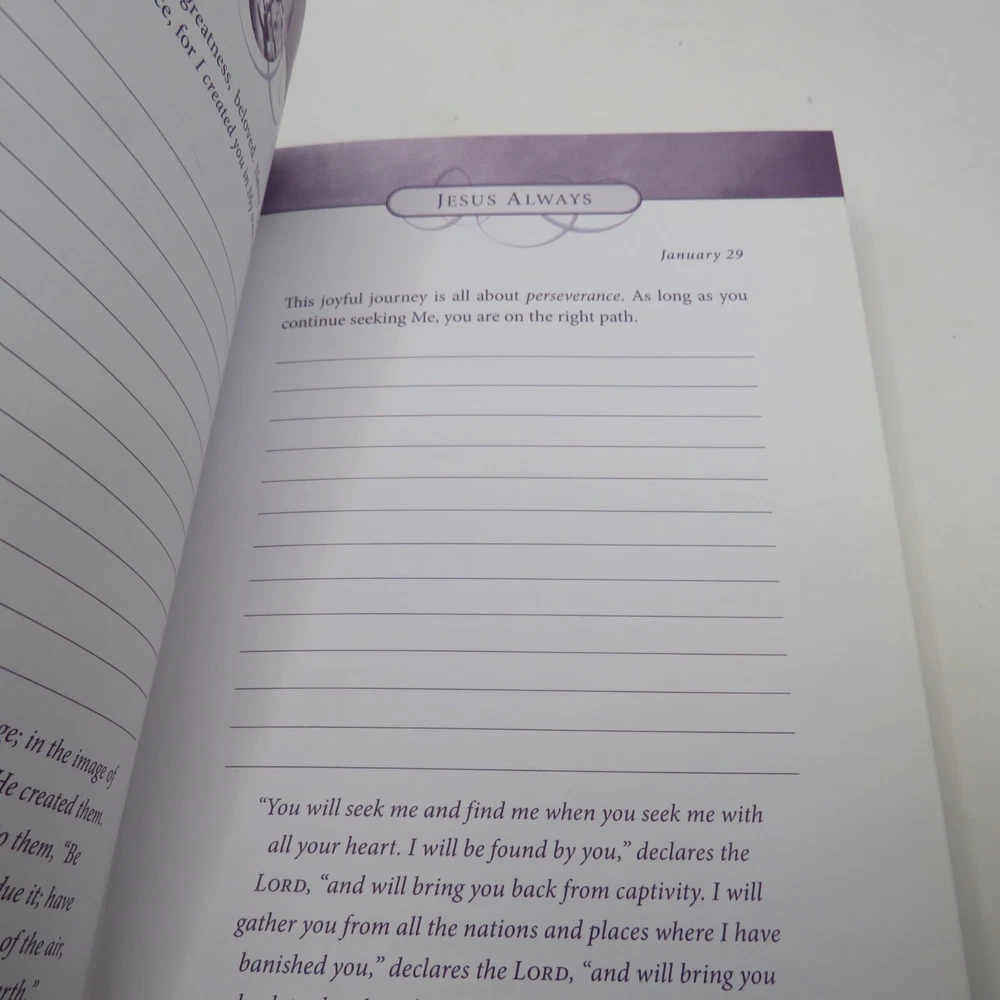 greatness, beloved.
ce, for I created you in My
ge; in the image of
He created them.
o them, “Be
due it; have
of the air,
rth.”
JESUS ALWAYS
January 29
This joyful journey is all about perseverance. As long as you
continue seeking Me, you are on the right path.
“You will seek me and find me when you seek me with
all your heart. I will be found by you,” declares the
LORD, “and will bring you back from captivity. I will
gather you from all the nations and places where I have
banished you,” declares the LORD, “and will bring you